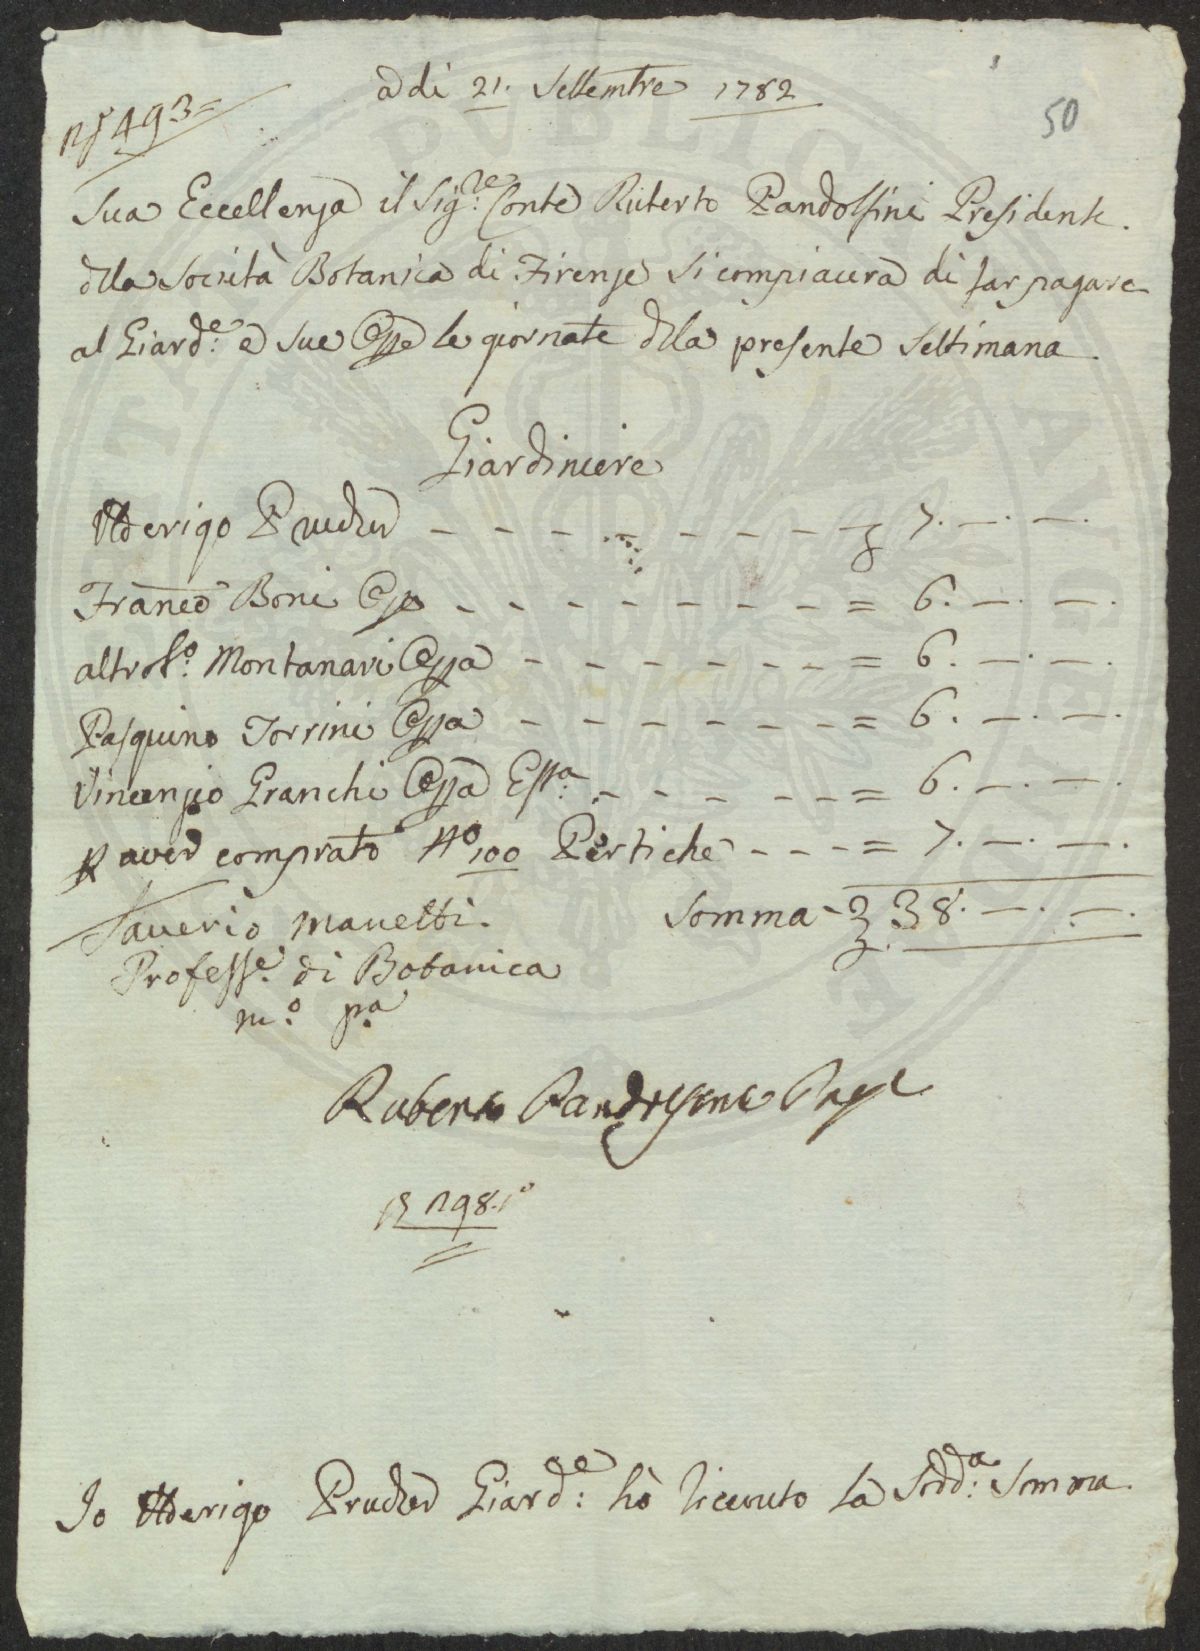 a di 21. Settembre 1782
N.º 493=
50
Sua Eccellenza il Sig.re Conte Ruberto Pandolfini Presidente.
dlla Società Botanica di Firenze si compiacera di far pagare
al Giard.e e sue Opre le giornate dlla presente Settimana.
Giardiniere
Arrigo Prucker - - - - - - - - 7. —. —.
Franco Boni Opa - - - - - - - = 6. —. —.
altro F.o Montanari Oppa - - - - - - = 6. —. —.
Pasquino Torrini Oppa - - - - - - = 6. —. —.
Vincenzio Granchi Oppa Essa. - - - - - = 6. —. —.
P aver comprato No 100 Pertiche - - - = 7. —. —.
Saverio Manetti.
Somma - 38. —. —.
Profess.e di Botanica
m.o pa
Ruberto Pandolfini
298.
Io Arrigo Prucker Giard.e hò ricevuto la Sudd.a Somma.